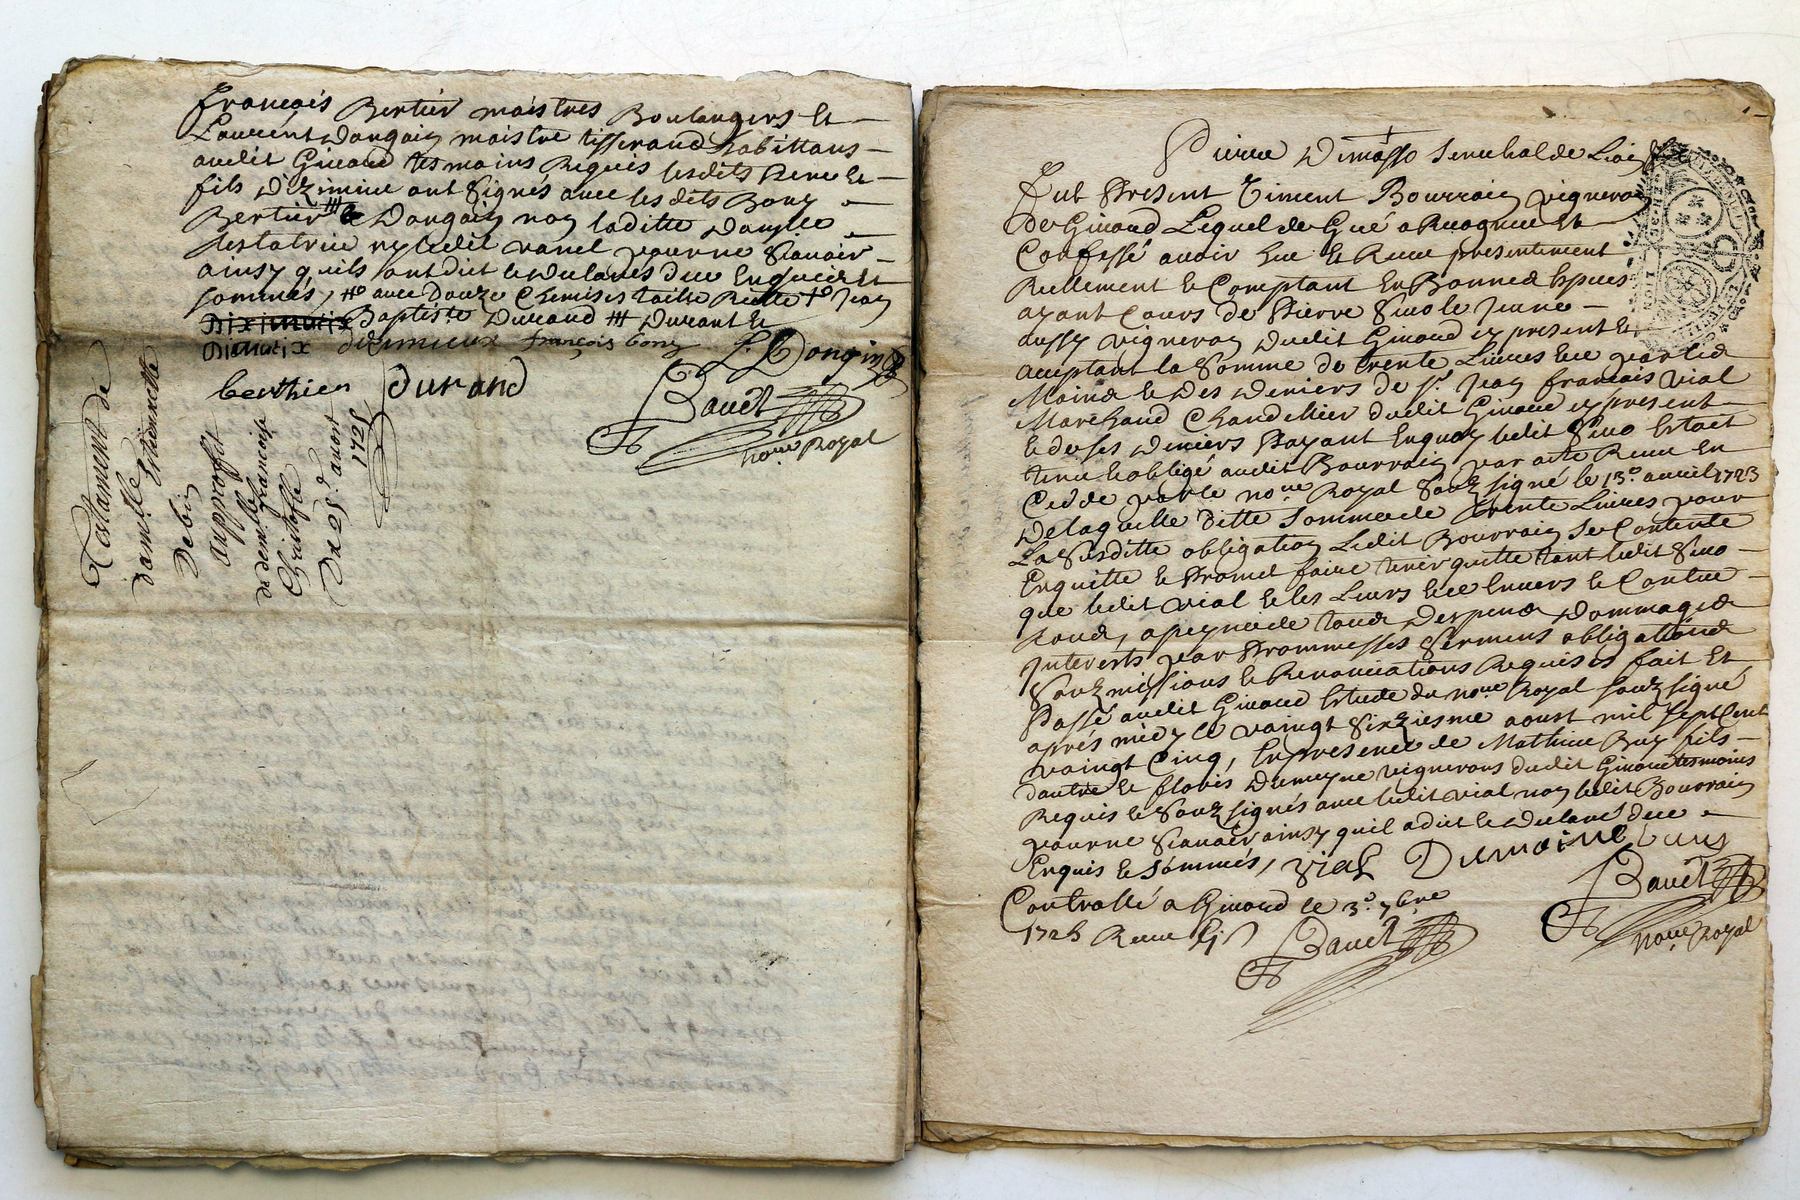 françois Bertier maistres Boulangers Et
Laurent Dongoin maistre tisserand habittans
audit Givord tesmoins Requis lesdits Rene Et
fils Dizimieu ont Signés avec lesdits Bony
Bertier # Dongoin non laditte Damlle
testatrice ny ledit vanel pour ne Scavoir
ainsy quils ont dit et declarés de ce Enquis et
sommés, avec Douze Chemises toille Jean
Baptiste Durand # Durant Et
Dizimieux françois bony L. Dongoin
berthier Durand
Baudt
nore Royal
Testament de
damlle Estiennette
Debis
au proffit
de demlle francoise
Christofle
Du 25d aoust
1725
Pierre Senechal de Lion
fut Present Vincent Bourrain vigneron
de Givord Lequel de Gré a Recognu Et
Confessé avoir heu et Receu presentement
Reellement et Comptant En Bonnes Especes
ayant Cours de Pierre le Jeune
aussy vigneron dudit Givord cy present Et
acceptant la Somme de trente Livres
et des deniers de sr Jean françois vial
Marchand Chandellier dudit Givord cy present
et de ses deniers Payant Enquoy ledit Estoit
tenu et obligé audit Bourrain par acte Receu Et
Cedde par le nore Royal Soubsigné le 13e avril 1723
De laquelle ditte Somme de trente Livres pour
La Susditte obligation Ledit Bourrain Se Contente
Enquitte et Promet faire tenir quitte tant ledit
que ledit vial et les Leurs Envers et Contre
tous, a peyne de tous Despens Dommages
Interests par Prommesses Sermens obligations
Soubzmissions et Renonciations Requises fait Et
Passé audit Givord Estude du nore Royal Soubzsigné
aprés midy le vaingt Sixziesme aoust mil Sept Cent
vaingt Cinq, En presence de Mathieu fils
dautre et Dumoyne vignerons dudit Givord tesmoins
Requis et Soubzsignés avec ledit vial non ledit Bourrain
pour ne Scavoir ainsy quil a dit et declaré de ce
Enquis et Sommés, vial Dumoine
Baudt
nore Royal
Controllé a Givord le 3e 7bre
1725 Receu
Baudt